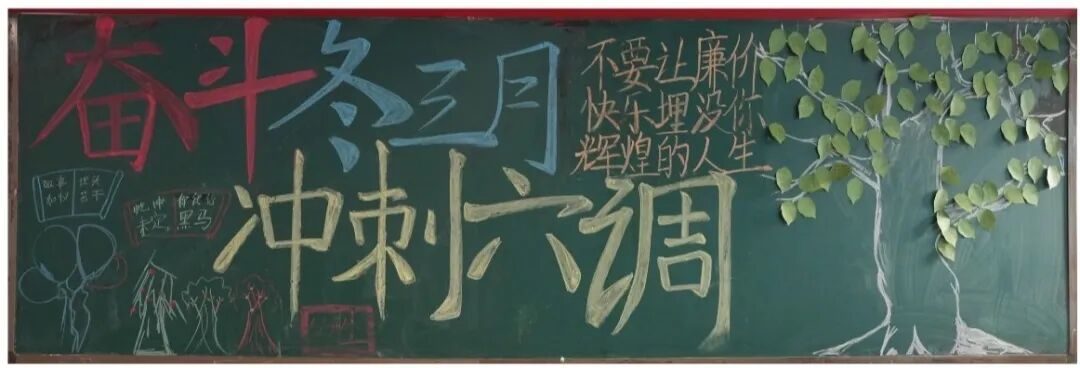 奋斗冬三月
冲刺六调
不要让廉价
快乐埋没你
辉煌的人生
黑马